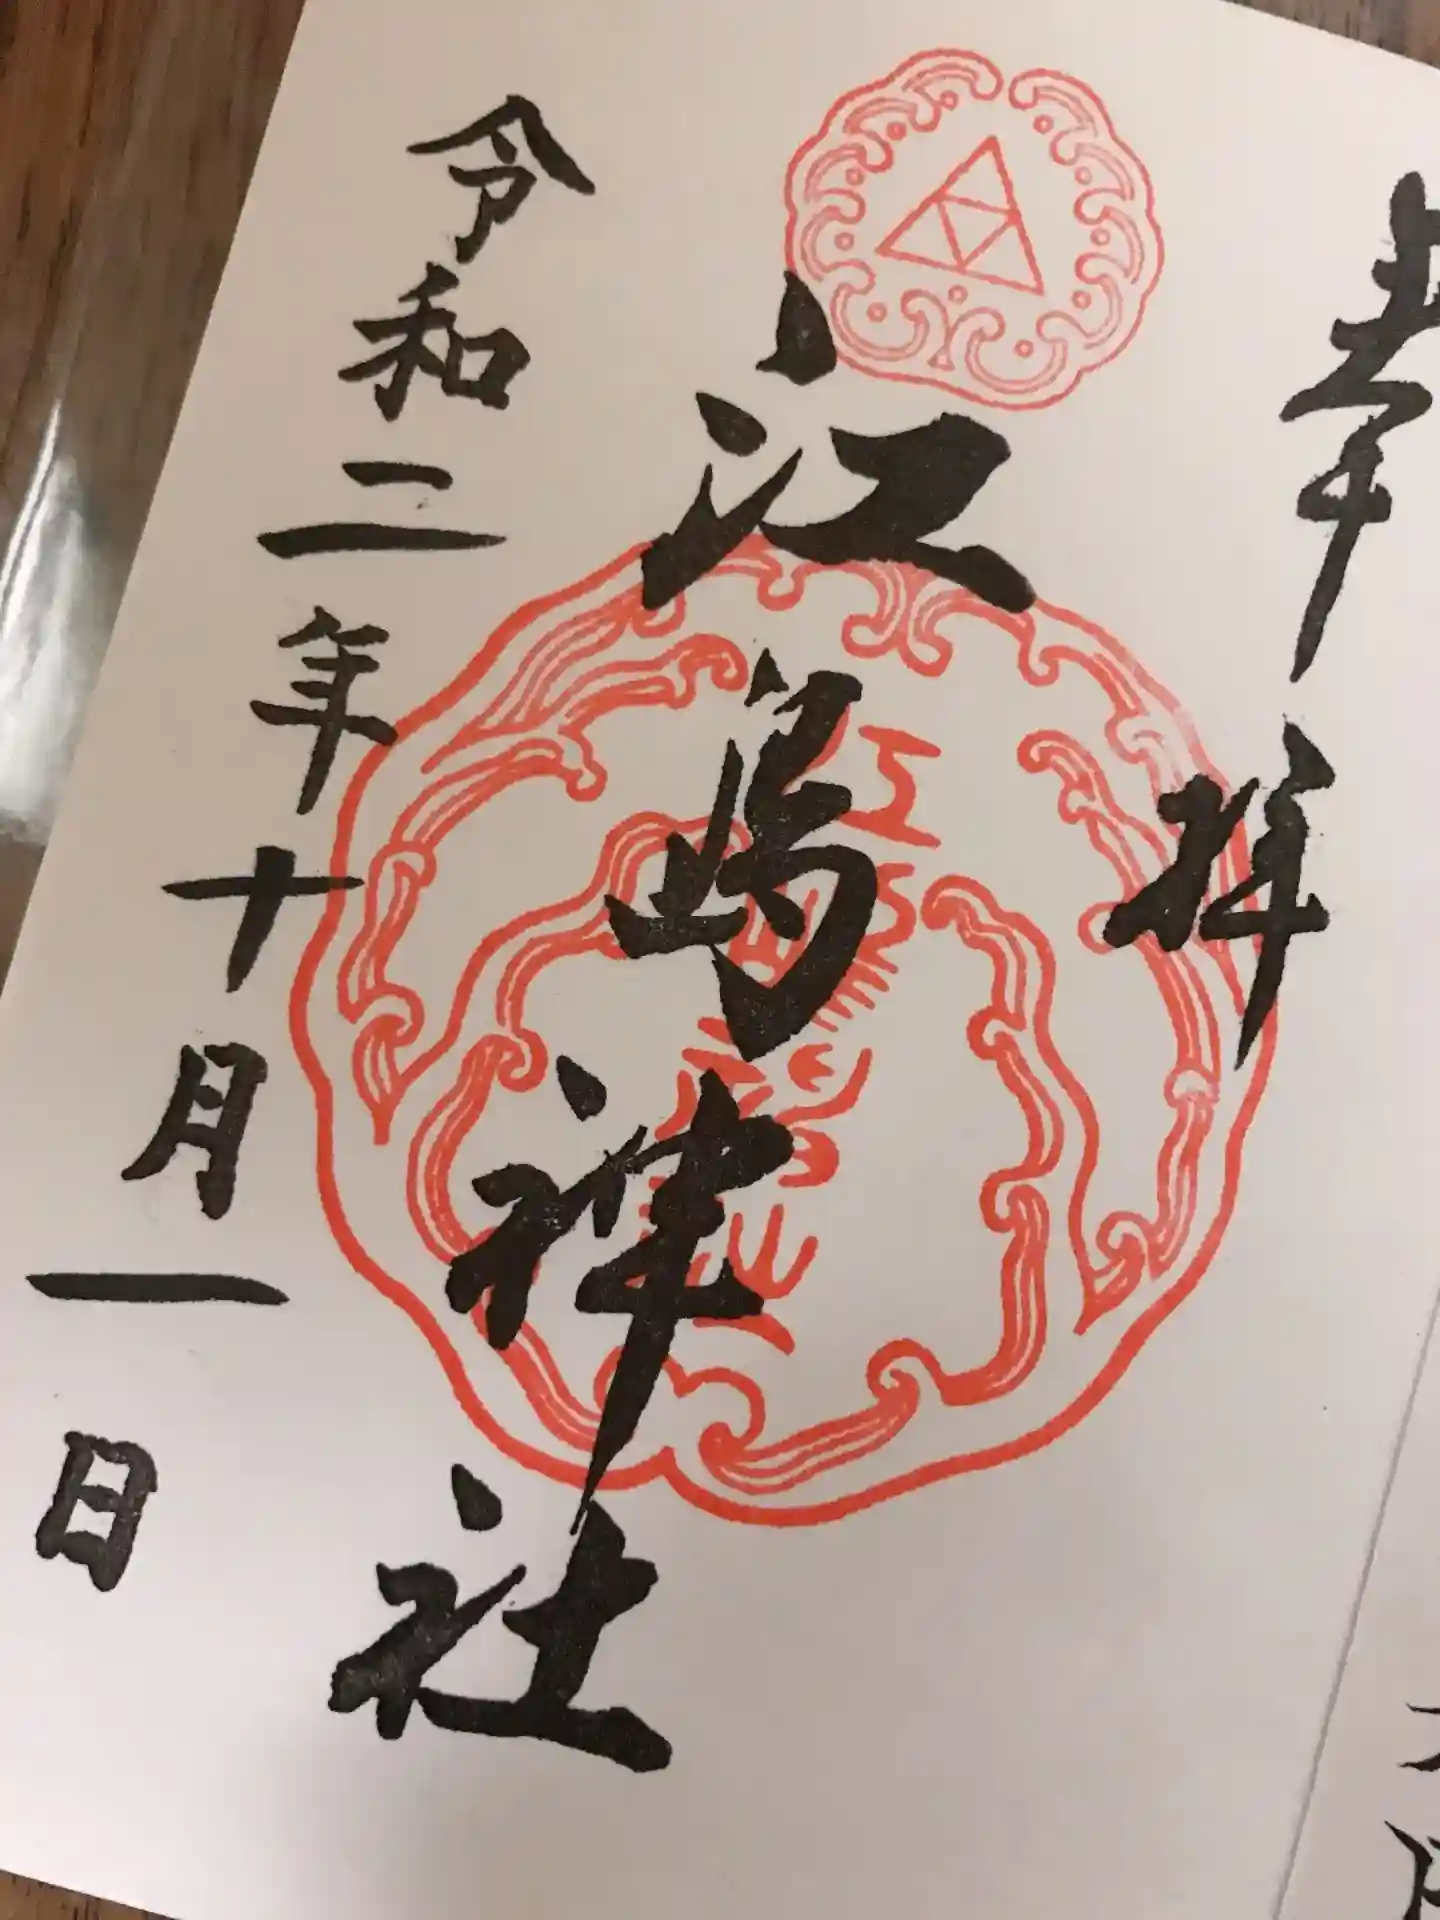 奉拝
江嶋神社
令和二年十月一日